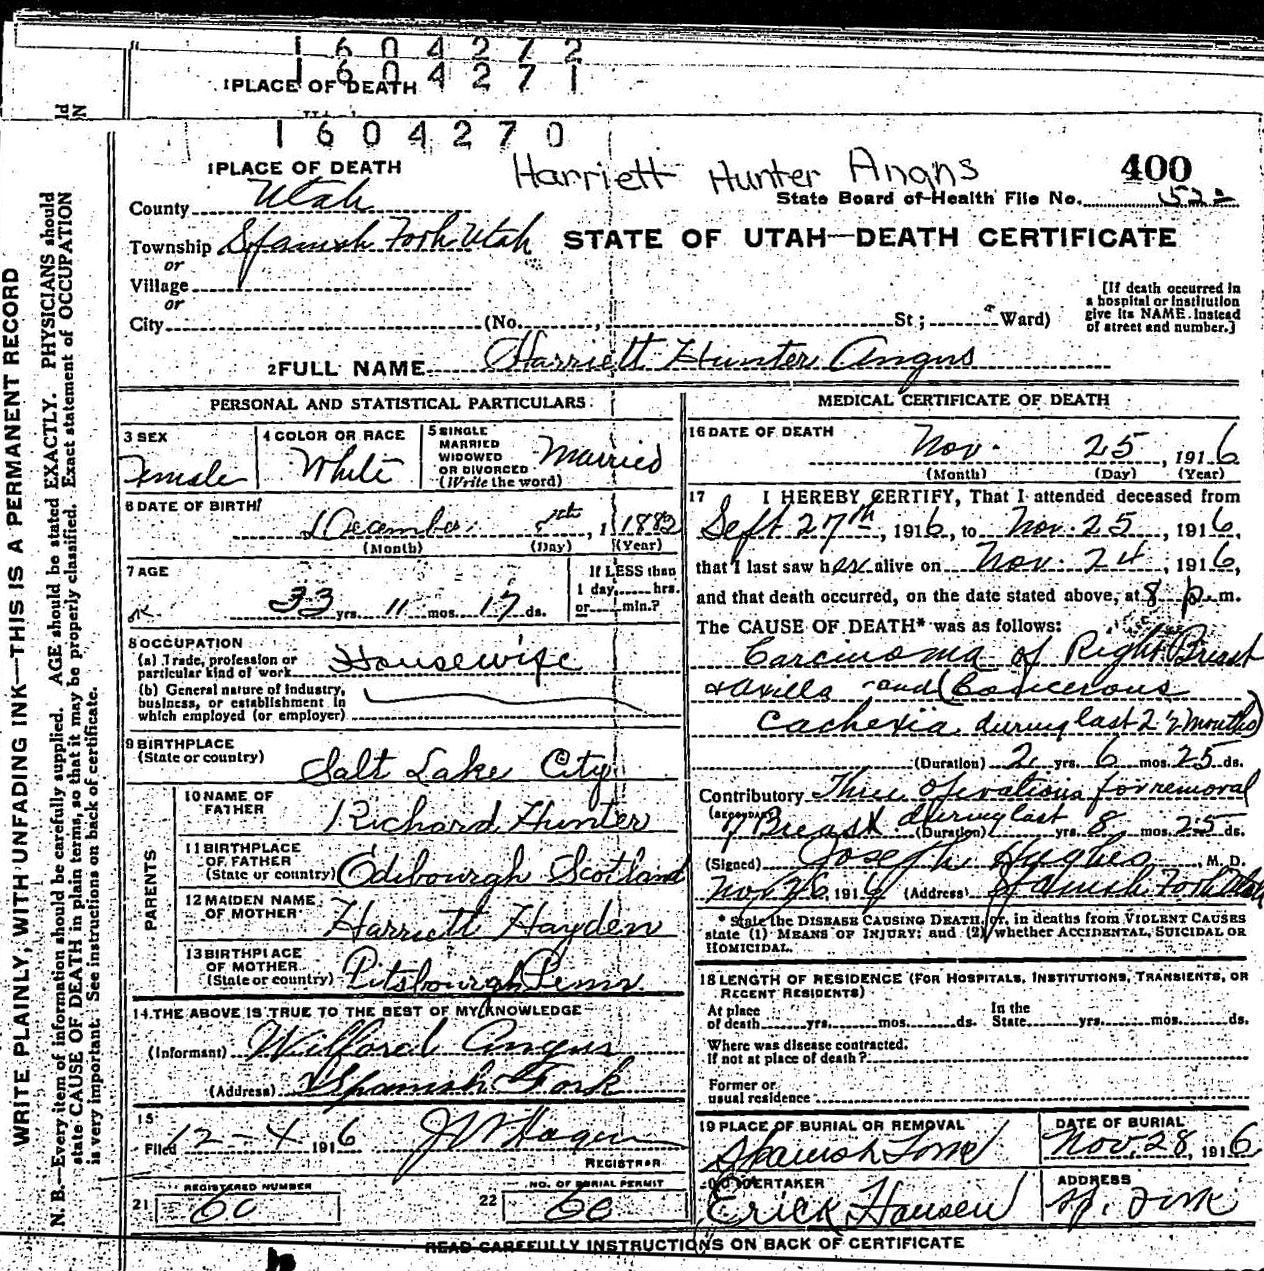 1604272
1604271
1PLACE OF DEATH
1604270
1PLACE OF DEATH
Harriett Hunter Angus
400
County Utah
State Board of Health File No.
Township Spanish Fork Utah
STATE OF UTAH—DEATH CERTIFICATE
or
Village
or
City (No. , St; Ward)
[If death occurred in
a hospital or institution
give its NAME instead
of street and number.]
2FULL NAME Harriett Hunter Angus
PERSONAL AND STATISTICAL PARTICULARS
3 SEX
Female
4 COLOR OR RACE
White
5 SINGLE
MARRIED
WIDOWED
OR DIVORCED
(Write the word)
Married
6 DATE OF BIRTH
December 8th, 1 1882
(Month) (Day) (Year)
7 AGE
33 yrs. 11 mos. 17 ds.
If LESS than
1 day, hrs.
or min.?
8 OCCUPATION
(a) Trade, profession or
particular kind of work Housewife
(b) General nature of industry,
business, or establishment in
which employed (or employer)
9 BIRTHPLACE
(State or country) Salt Lake City
PARENTS
10 NAME OF
FATHER Richard Hunter
11 BIRTHPLACE
OF FATHER
(State or country) Edibourgh Scotland
12 MAIDEN NAME
OF MOTHER Harriett Hayden
13 BIRTHPLACE
OF MOTHER
(State or country) Pitsbourgh Penn
14 THE ABOVE IS TRUE TO THE BEST OF MY KNOWLEDGE
(Informant) Wilford Angus
(Address) Spanish Fork
15
Filed 12-4 1916
REGISTRAR
21 REGISTERED NUMBER
60
22 NO. OF BURIAL PERMIT
60
MEDICAL CERTIFICATE OF DEATH
16 DATE OF DEATH
Nov. 25, 1916
(Month) (Day) (Year)
17 I HEREBY CERTIFY, That I attended deceased from
Sept 27th, 1916, to Nov. 25, 1916,
that I last saw her alive on Nov. 24, 1916,
and that death occurred, on the date stated above, at 8 p. m.
The CAUSE OF DEATH* was as follows:
Carcinoma of Right Breast
& axilla and (Cancerous
Cachexia during last 2 ½ months)
(Duration) 2 yrs. 6 mos. 25 ds.
Contributory Three operations for removal
(SECONDARY)
of Breast during last
(Duration) yrs. 8 mos. 25 ds.
(Signed) Joseph Hughes, M. D.
Nov 26, 1916 (Address) Spanish Fork Utah
* State the DISEASE CAUSING DEATH, or, in deaths from VIOLENT CAUSES
state (1) MEANS OF INJURY; and (2) whether ACCIDENTAL, SUICIDAL OR
HOMICIDAL.
18 LENGTH OF RESIDENCE (FOR HOSPITALS, INSTITUTIONS, TRANSIENTS, OR
RECENT RESIDENTS)
At place
of death yrs. mos. ds.
In the
State yrs. mos. ds.
Where was disease contracted.
If not at place of death?
Former or
usual residence
19 PLACE OF BURIAL OR REMOVAL
Spanish Fork
DATE OF BURIAL
Nov. 28, 1916
UNDERTAKER
Erick Hansen
ADDRESS
Sp. Fork
READ CAREFULLY INSTRUCTIONS ON BACK OF CERTIFICATE
WRITE PLAINLY, WITH UNFADING INK—THIS IS A PERMANENT RECORD
N. B.—Every item of information should be carefully supplied. AGE should be stated EXACTLY. PHYSICIANS should
state CAUSE OF DEATH in plain terms, so that it may be properly classified. Exact statement of OCCUPATION
is very important. See instructions on back of certificate.